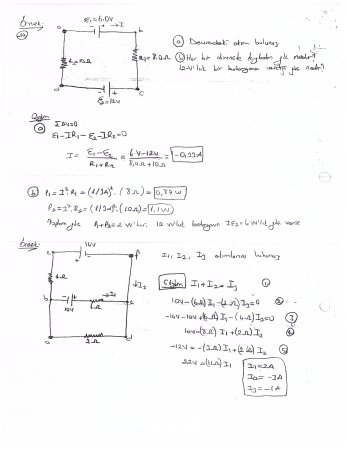 Örnek
ε₁=6.0V
→I
a
b
R₁=8.0Ω
R₂=10Ω
ε₂=12V
d
c
(a) Devredeki akım bulunuz
(b) Her bir dirençte kaybolan güç nedir?
12 V'luk bir bataryanın verdiği güç nedir?
Çözüm
(a) ΣΔV=0
ε₁-IR₁-ε₂-IR₂=0
I = (ε₁-ε₂)/(R₁+R₂) = (6V-12V)/(8,0Ω+10Ω) = -0,33A
(b) P₁=I²R₁ = (1/3A)².(8Ω) = 0,87W
P₂=I²R₂=(1/3A)².(10Ω)=1,1W
Toplam güç P₁+P₂=2 W'tır. 12 W'lik bataryanın Iε₂=4W'lık güç verir
Örnek
14V
e
f
I₁, I₂, I₃ akımlarını bulunuz
4Ω
↓I₂
b
c
10V
6Ω
I₁
a
d
2Ω
Çözüm I₁+I₂=I₃ (1)
10V-(6Ω)I₁-(2Ω)I₃=0 (2)
-14V-10V+(6Ω)I₁-(4Ω)I₂=0 (3)
10V=(8Ω)I₁+(2Ω)I₂ (4)
-12V=-(3Ω)I₁+(2Ω)I₂ (5)
22V=(11Ω)I₁
I₁=2A
I₂=-3A
I₃=-1A